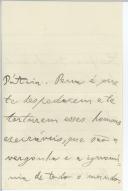 Pátria. Pena é que
te despedacem e te
torturem esses homens
execráveis, que são a
vergonha e a ignomi-
nia de todo o mundo,